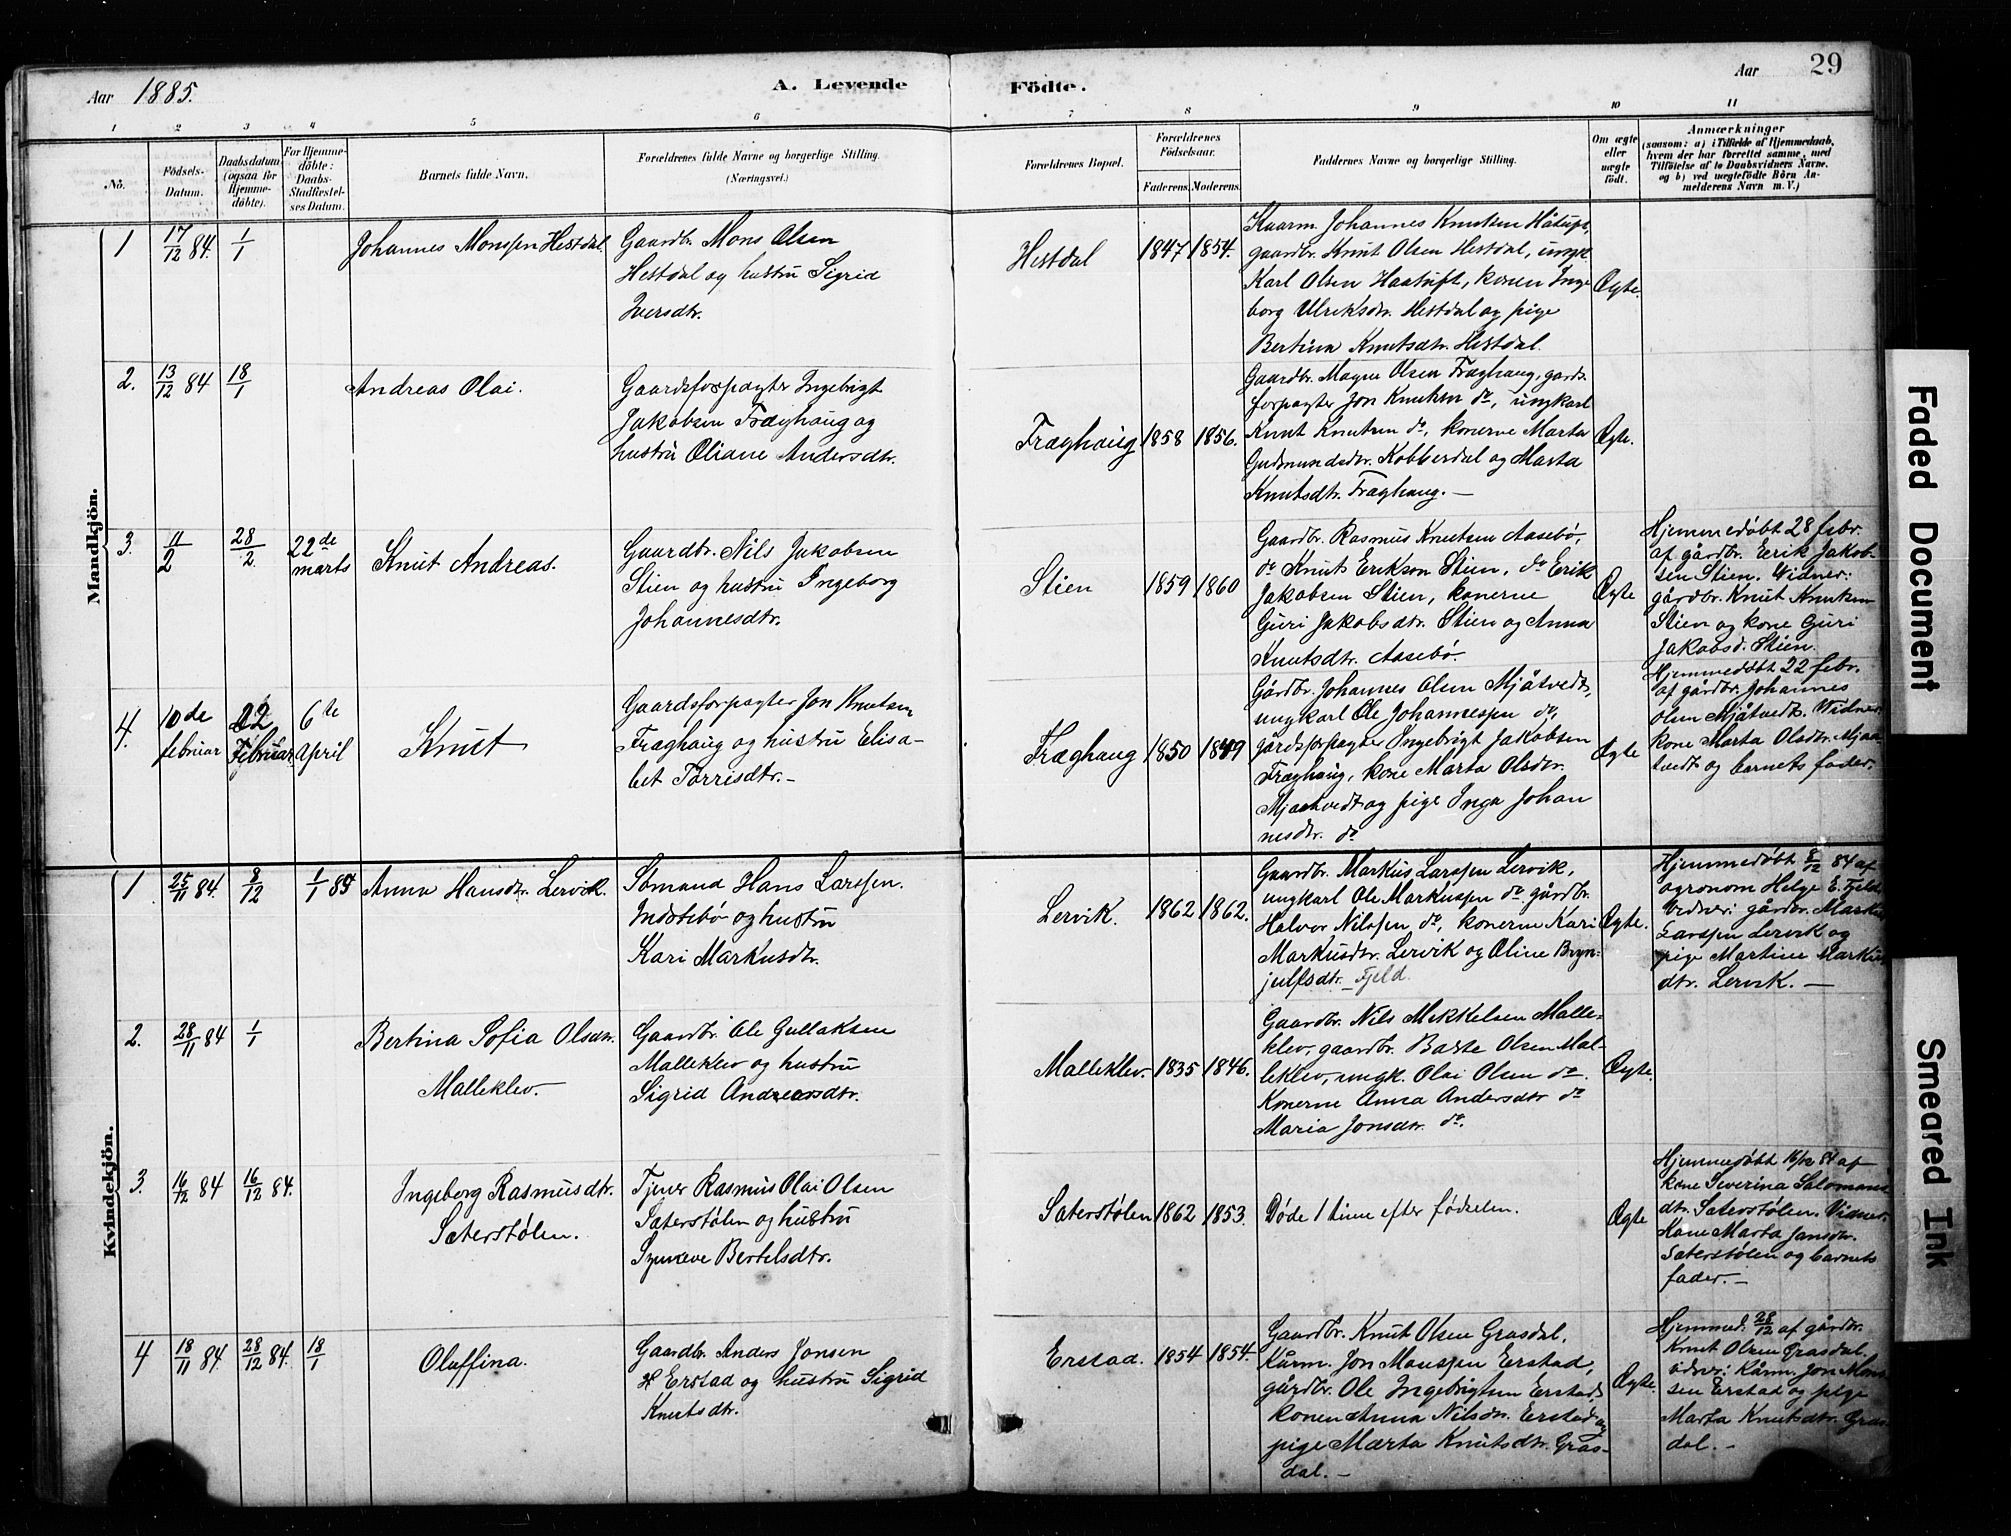 Aar 1885.
A. Levende
Födte.
Aar
29
1
2
3
4
5
6
7
8
9
10
11
No.
Födsels-
Datum.
Daabsdatum
(ogsaa for
Hjemme-
döbte).
For Hjemme-
döbte:
Daabs-
Stadfæstel-
ses Datum.
Barnets fulde Navn.
Forældrenes fulde Navne og borgerlige Stilling.
(Næringsvei.)
Forældrenes Bopæl.
Forældrenes
Födselsaar.
Faderens.
Moderens.
Faddernes Navne og borgerlige Stilling.
Om ægte
eller
uægte
födt.
Anmærkninger
(saasom: a) i Tilfælde af Hjemmedaab,
hvem der har forrettet samme, med
Tilföielse af to Daabsvidners Navne.
og b) ved uægtefödte Börn An-
melderens Navn m. V.)
Mandkjön.
1
17/12 84.
1/1
Johannes Monssen Hestdal.
Gaardbr. Mons Olsen
Hestdal og hustru Sigrid
Iversdtr.
Hestdal
1847
1854.
Kaarm. Johannes Knutsen Håtuft,
gaardbr. Knut Olsen Hestdal, ungk.
Karl Olsen Haatuft, konen Inge
borg Ulriksdtr. Hestdal og pige
Bertina Knutsdtr. Hestdal.
Ægte.
2.
13/12 84
18/1
Andreas Olai.
Gaardsforpagter Ingebrigt
Jakobsen Fræghaug og
hustru Oliane Andersdtr.
Fræghaug
1858
1856.
Gaardbr. Magne Olsen Fræghaug, gards
forpagter Jon Knutsen do, ungkarl
Knut Knutsen do, konerne Marta
Gudmundsdtr. Kobberdal og Marta
Knutsdtr. Fræghaug. —
Ægte.
3.
11/2
28/2
22de
marts
Knut Andreas.
Gaardbr. Nils Jakobsen
Stien og hustru Ingeborg
Johannesdtr.
Stien
1859
1860
Gaardbr. Rasmus Knutsen Aasebø,
do Knut Erikson Stien, do Erik
Jakobsen Stien, konerne
Guri Jakobsdtr. Stien og Anna
Knutsdtr. Aasebø.
Ægte
Hjemmedøbt 28 febr.
af gårdbr. Erik Jakob-
sen Stien. Widner:
gårdbr. Knut Knutsen
Stien og kone Guri
Jakobsd. Stien.
4.
10de
februar
22
Februar
6te
April
Knut
Gaardsforpagter Jon Knutsen
Fræghaug og hustru Elisa-
bet Torrisdtr. –
Fræghaug
1850
1849
Gårdbr. Johannes Olsen Mjåtvedt,
ungkarl Ole Johannessen do,
gårdsforpagter Ingebrigt Jakobsen
Fræghaug, kone Marta Olsdtr.
Mjaatvedt og pige Inga Johan
nesdtr. do
Ægte
Hjemmedøbt 22 febr.
af gårdbr. Johannes
Olsen Mjåtvedt. Widner:
kone Marta Olsdtr. Mjaa-
tvedt og barnets fader.
Kvindekjön.
1
25/11 84.
8/12
1/1 85
Anna Hansdtr. Lervik.
Sømand Hans Larssen.
Indstebø og hustru
Kari Markusdtr.
Lervik.
1862
1862.
Gaardbr. Markus Larssen Lervik,
ungkarl Ole Markussen do gårdbr.
Halvor Nilssen do, konerne Kari
Markusdtr. Lervik og Oline Bryn-
julfsdtr. – Fjeld.
Ægte.
Hjemmedøbt 8/12 84 af
agronom Helge E. Fjeld.
Vidner: gårdbr. Markus
Larssen Lervik og
pige Martine Markus
dtr. Lervik. —
2.
28/11 84
1/1
Bertina Sofia Olsdtr.
Malleklev.
Gaardbr. Ole Gullaksen
Malleklev og hustru
Sigrid Andreasdtr.
Malleklev.
1835
1846.
Gaardbr. Nils Mikkelsen Malle-
klev, gaardbr. Baste Olsen Mal-
leklev, ungk. Olai Olsen do.
Konerne Anna Andersdtr do
Maria Jonsdtr. do.
Ægte.
3.
16/12 84
16/12 84.
Ingeborg Rasmusdtr.
Sæterstølen.
Tjener Rasmus Olai Olsen
Sæterstølen og hustru
Synneve Bertelsdtr.
Sæterstølen
1862
1853.
Døde 1 time efter fødselen.
Ægte
Hjemmedøbt 16/12 84 af
kone Severina Salomons
dtr. Sæterstølen. Vidner.
Kone Marta Jansdtr.
Sæterstølen og barnets
fader. –
4
18/11 84
28/12 84.
18/1
Oluffina.
Gaardbr. Anders Jonsen
Erstad og hustru Sigrid
Knutsdtr.
Erstad.
1854
1854.
Gaardbr. Knut Olsen Grasdal,
Kårm. Jon Monssen Erstad,
gårdbr. Ole Ingebrigtsen Erstad,
konen Anna Nilsdtr. Erstad og
pige Marta Knutsdtr. Gras-
dal. —
Ægte.
Hjemmed. 28/12 af gårdbr.
Knut Olsen Grasdal.
vidner: Kårm. Jon Mons
sen Erstad og pige
Marta Knutsdtr. Gras
dal. –
Faded Document
Smeared Ink